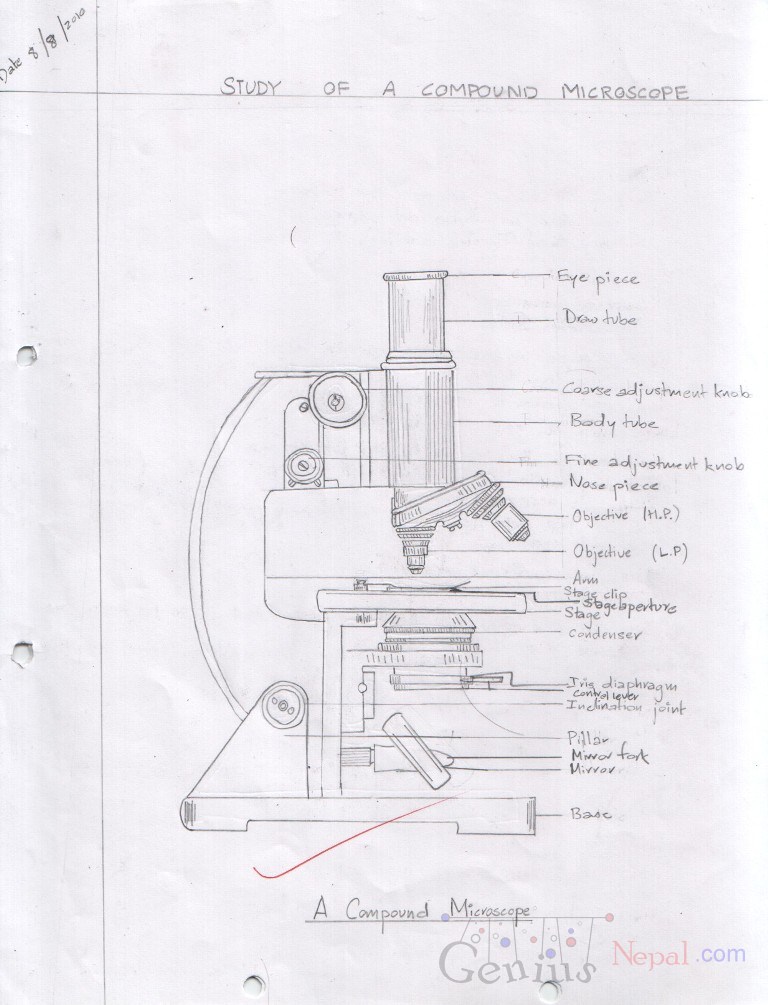 Date 8/8/2010
STUDY OF A COMPOUND MICROSCOPE
Eye piece
Draw tube
Coarse adjustment knob
Body tube
Fine adjustment knob
Nose piece
Objective (H.P.)
Objective (L.P)
Arm
Stage clip
Stage aperture
Stage
Condenser
Iris diaphragm
control lever
Inclination joint
Pillar
Mirror fork
Mirror
Base
A Compound Microscope
Genius Nepal.com